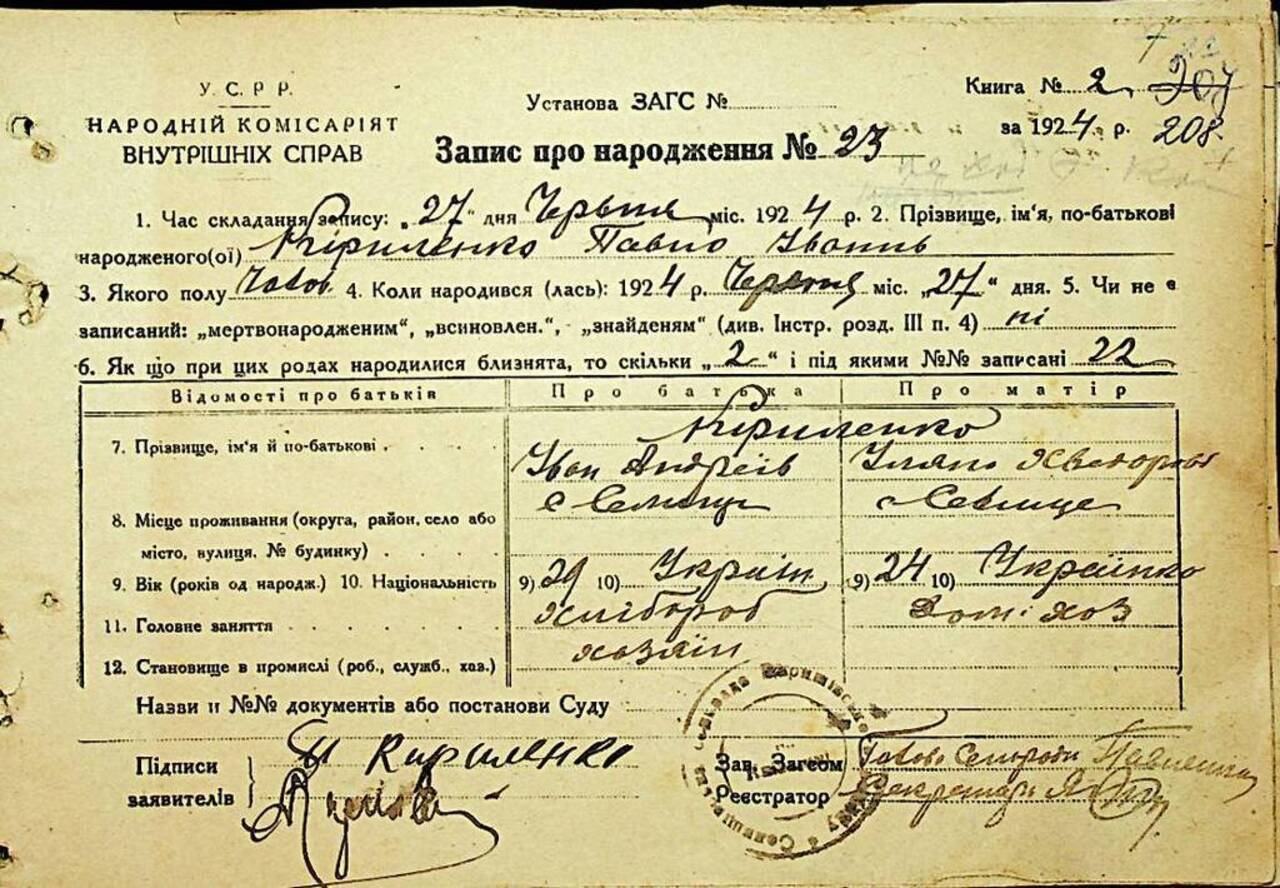 У.С.Р.Р.
НАРОДНІЙ КОМІСАРІЯТ
ВНУТРІШНІХ СПРАВ
Установа ЗАГС №
Книга № 2
207
за 1924 р. 208
Запис про народження № 23
1. Час складання запису: „27" дня Червня міс. 1924 р. 2. Прізвище, ім'я, по-батькові
народженого(ої) Кириленко Павло Іванів
3. Якого полу 4. Коли народився (лась): 1924 р. Червня міс. „27" дня. 5. Чи не є
записаний: „мертвонародженим", „всиновлен.", „знайденям" (див. Інстр. розд. III п. 4) ні
6. Як що при цих родах народилися близнята, то скільки „2" і під якими №№ записані 22
Відомості про батьків Про батька Про матір
Кириленко
7. Прізвище, ім'я й по-батькові
Іван Андріїв Уляна
8. Місце проживання (округа, район, село або
місто, вулиця, № будинку)
с с
9. Вік (років од народж.) 10. Національність 9) 29 10) Україн 9) 24 10) Українко
11. Головне заняття Хлібороб Дом. хоз
12. Становище в промислі (роб., служб., хаз.) хозяїн
Назви и №№ документів або постанови Суду
Підписи
заявителів
И Кириленко
Зав. Загсом Голова Сельради
Реєстратор Секретарь